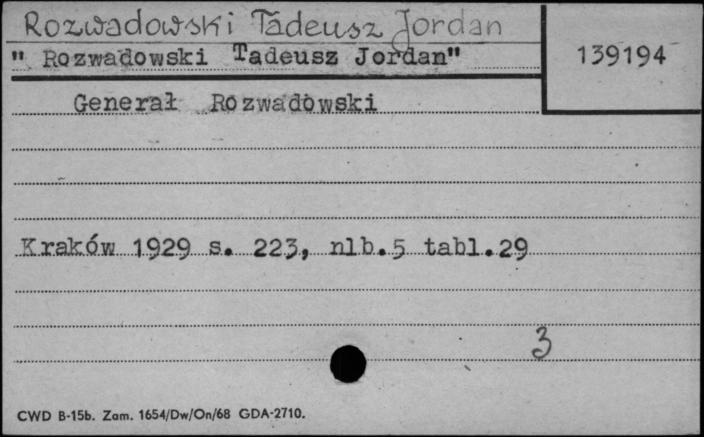 Rozwadowski Tadeusz Jordan
" Rozwadowski Tadeusz Jordan"
139194
Generał Rozwadowski
Kraków 1929 s. 223, nlb.5 tabl.29
3
CWD B-15b. Zam. 1654/Dw/On/68 GDA-2710.